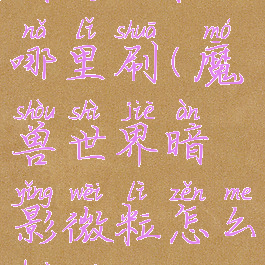 nǎ lǐ shuā mó
哪里刷(魔
shòu shì jiè àn
兽世界暗
yǐng wēi lì zěn me
影微粒怎么